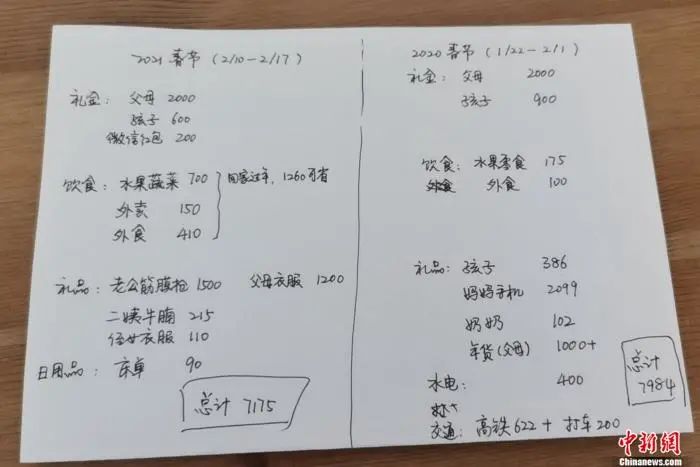 2021 春节 (2/10-2/17)
礼金: 父母 2000
孩子 600
微信红包 200
饮食: 水果蔬菜 700
外卖 150
外食 410
回家过年, 1260可省
礼品: 老公筋膜枪 1500 父母衣服 1200
二姨牛腩 215
侄女衣服 110
日用品: 床单 90
总计 7175
2020 春节 (1/22-2/1)
礼金: 父母 2000
孩子 900
饮食: 水果零食 175
外食 外食 100
礼品: 孩子 386
妈妈手机 2099
奶奶 102
年货(父母) 1000+
水电: 400
交通: 高铁622+ 打车200
总计
7984
中新网
Chinanews.com